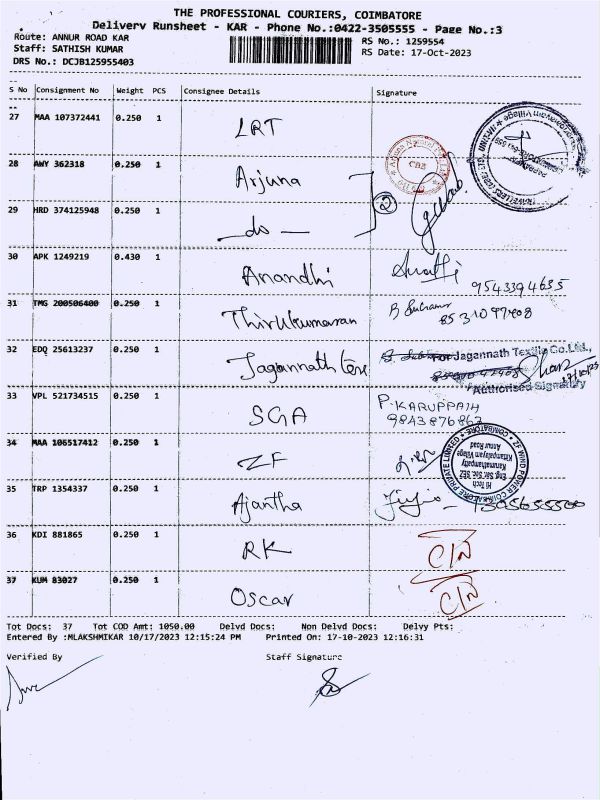 THE PROFESSIONAL COURIERS, COIMBATORE
Delivery Runsheet - KAR - Phone No.:0422-3505555 - Page No.:3
Route: ANNUR ROAD KAR
RS No.: 1259554
Staff: SATHISH KUMAR
RS Date: 17-Oct-2023
DRS No.: DCJB125955403
S No Consignment No Weight PCS Consignee Details Signature
27 MAA 107372441 0.250 1 LRT
28 AWY 362318 0.250 1 Arjuna
29 HRD 374125948 0.250 1 — do —
2
30 APK 1249219 0.430 1 Anandhi
9543394635
31 TMG 200506400 0.250 1 Thirukumaran
8531097408
32 EDQ 25613237 0.250 1 Jagannath Tex
For Jagannath Textile Co.Ltd.,
Authorised Signatory
33 VPL 521734515 0.250 1 SGA P. KARUPPAIH
9843876862
34 MAA 106517412 0.250 1 ZF
35 TRP 1354337 0.250 1 Ajantha
36 KDI 881865 0.250 1 RK C/N
37 KUM 83027 0.250 1 Oscar C/N
Tot Docs: 37 Tot COD Amt: 1050.00 Delvd Docs: Non Delvd Docs: Delvy Pts:
Entered By :MLAKSHMIKAR 10/17/2023 12:15:24 PM Printed On: 17-10-2023 12:16:31
Verified By Staff Signature